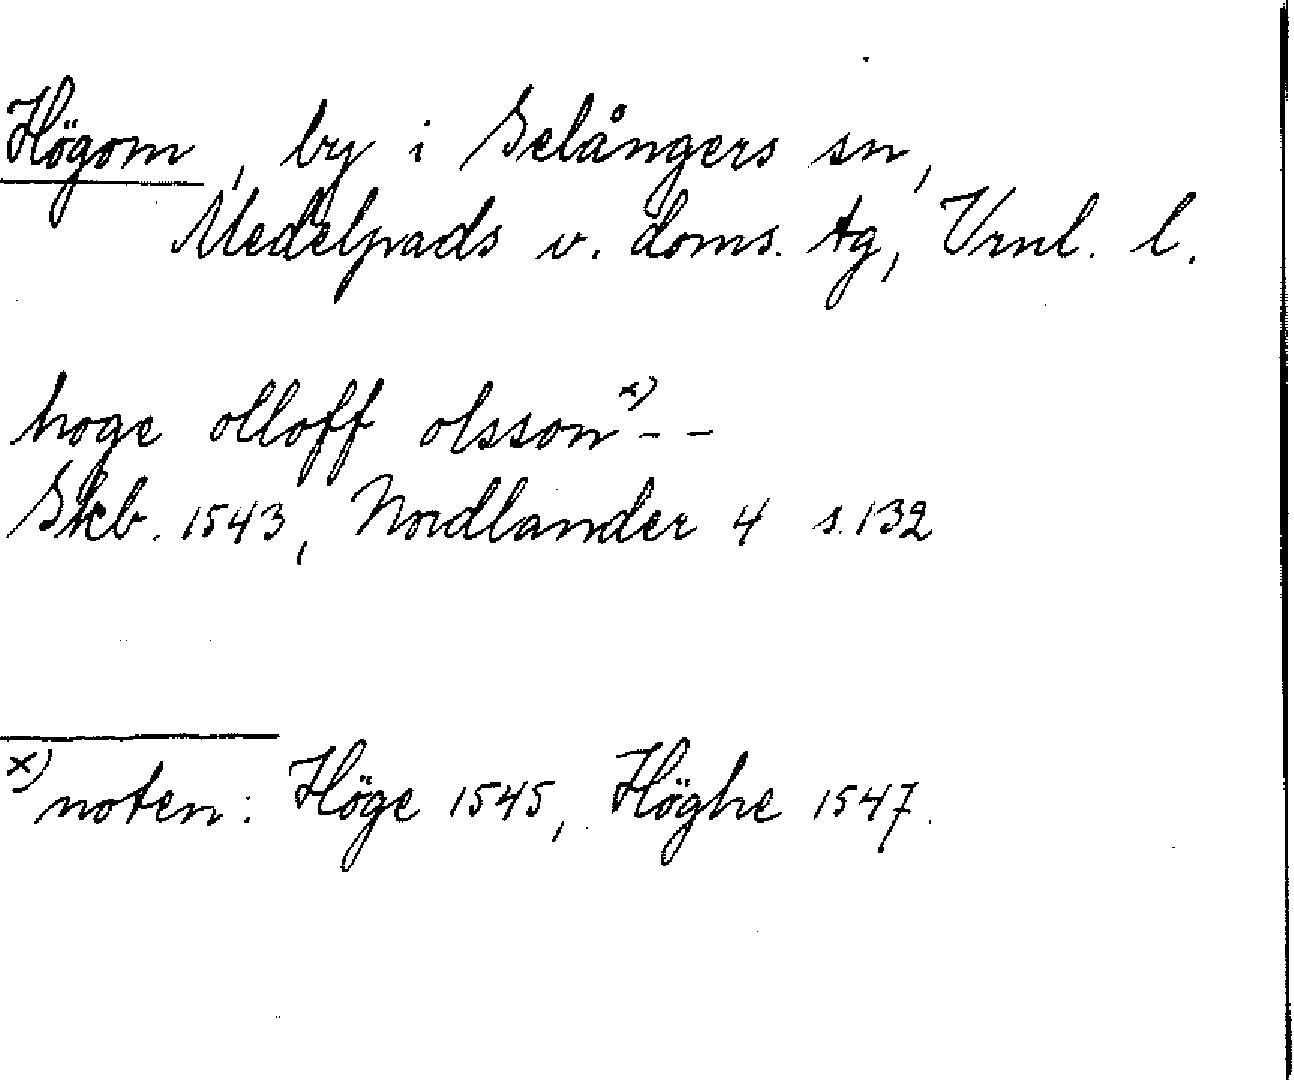 Högom, by i Selångers sn,
Medelpads v. doms. tg, Vrnl. l.
hoge olloff olsson x) - -
Skb. 1543, Nordlander 4 s. 132
x) noten: Höge 1545, Höghe 1547.